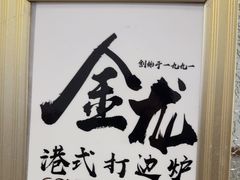 创始于一九九一
金龙
港式打边炉